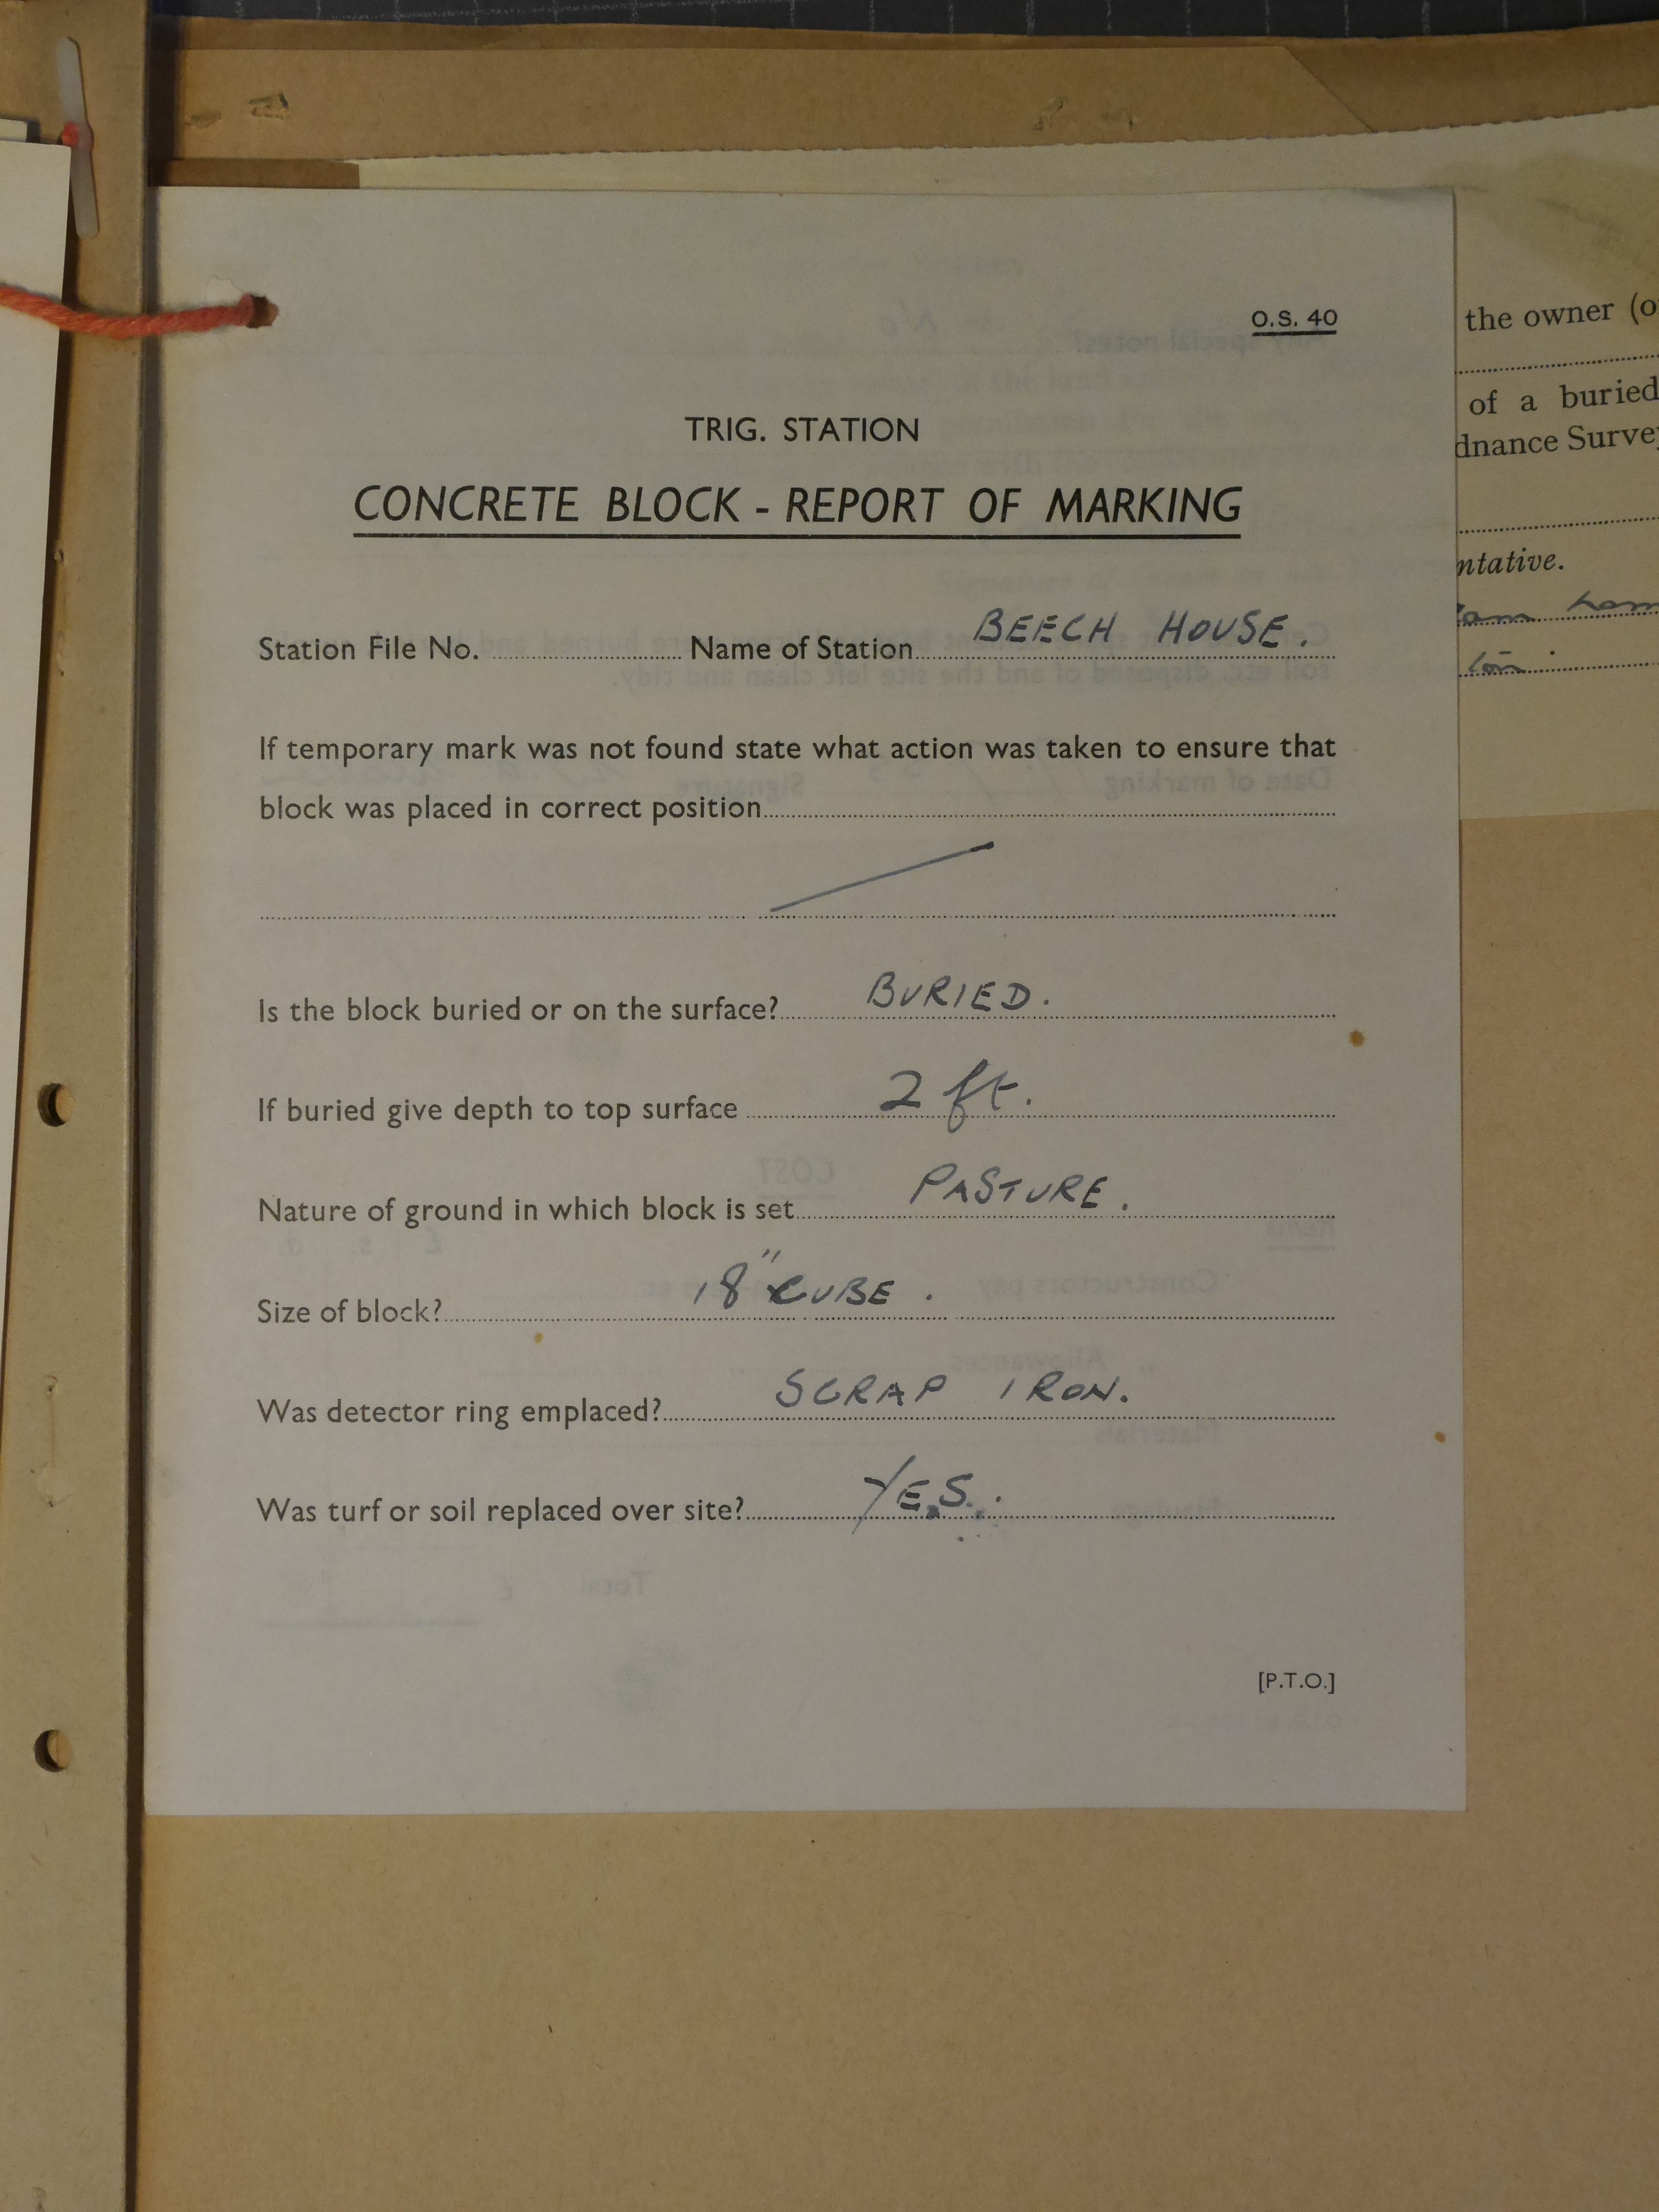 O.S. 40
TRIG. STATION
CONCRETE BLOCK - REPORT OF MARKING
Station File No. Name of Station BEECH HOUSE.
If temporary mark was not found state what action was taken to ensure that
block was placed in correct position
Is the block buried or on the surface? BURIED.
If buried give depth to top surface 2 ft.
Nature of ground in which block is set PASTURE.
Size of block? 18" CUBE.
Was detector ring emplaced? SCRAP IRON.
Was turf or soil replaced over site? YES.
[P.T.O.]
the owner (o
of a buried
dnance Surve
ntative.